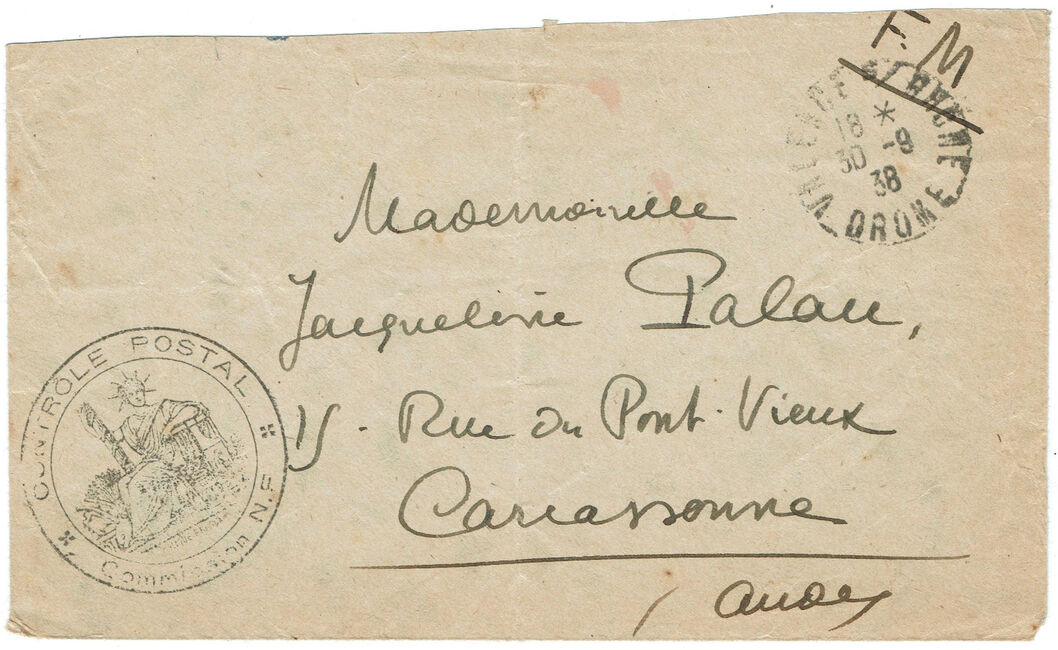 F.M
VALENCE S/ RHONE
18 *
30 -9
38
DROME
Mademoiselle
Jacqueline Palau,
15 - Rue du Pont-Vieux
Carcassonne
(Aude)
CONTRÔLE POSTAL
Commission N.F